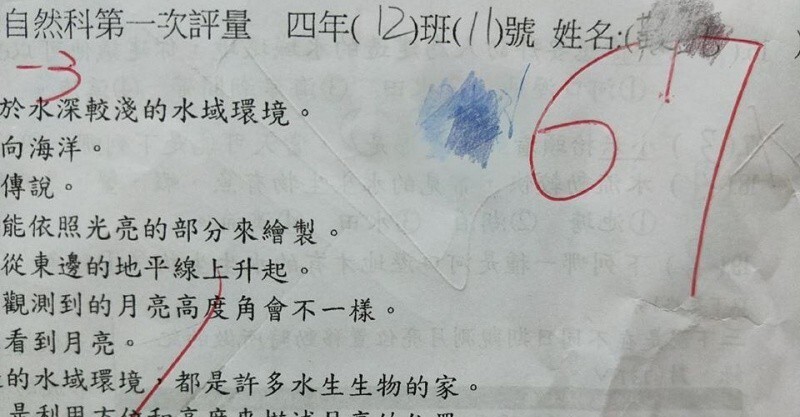 自然科第一次評量 四年(12)班(11)號 姓名:(
67
-3
於水深較淺的水域環境。
向海洋。
傳說。
能依照光亮的部分來繪製。
從東邊的地平線上升起。
觀測到的月亮高度角會不一樣。
看到月亮。
的水域環境,都是許多水生生物的家。
是利用方位和高度來描述月亮的位置。